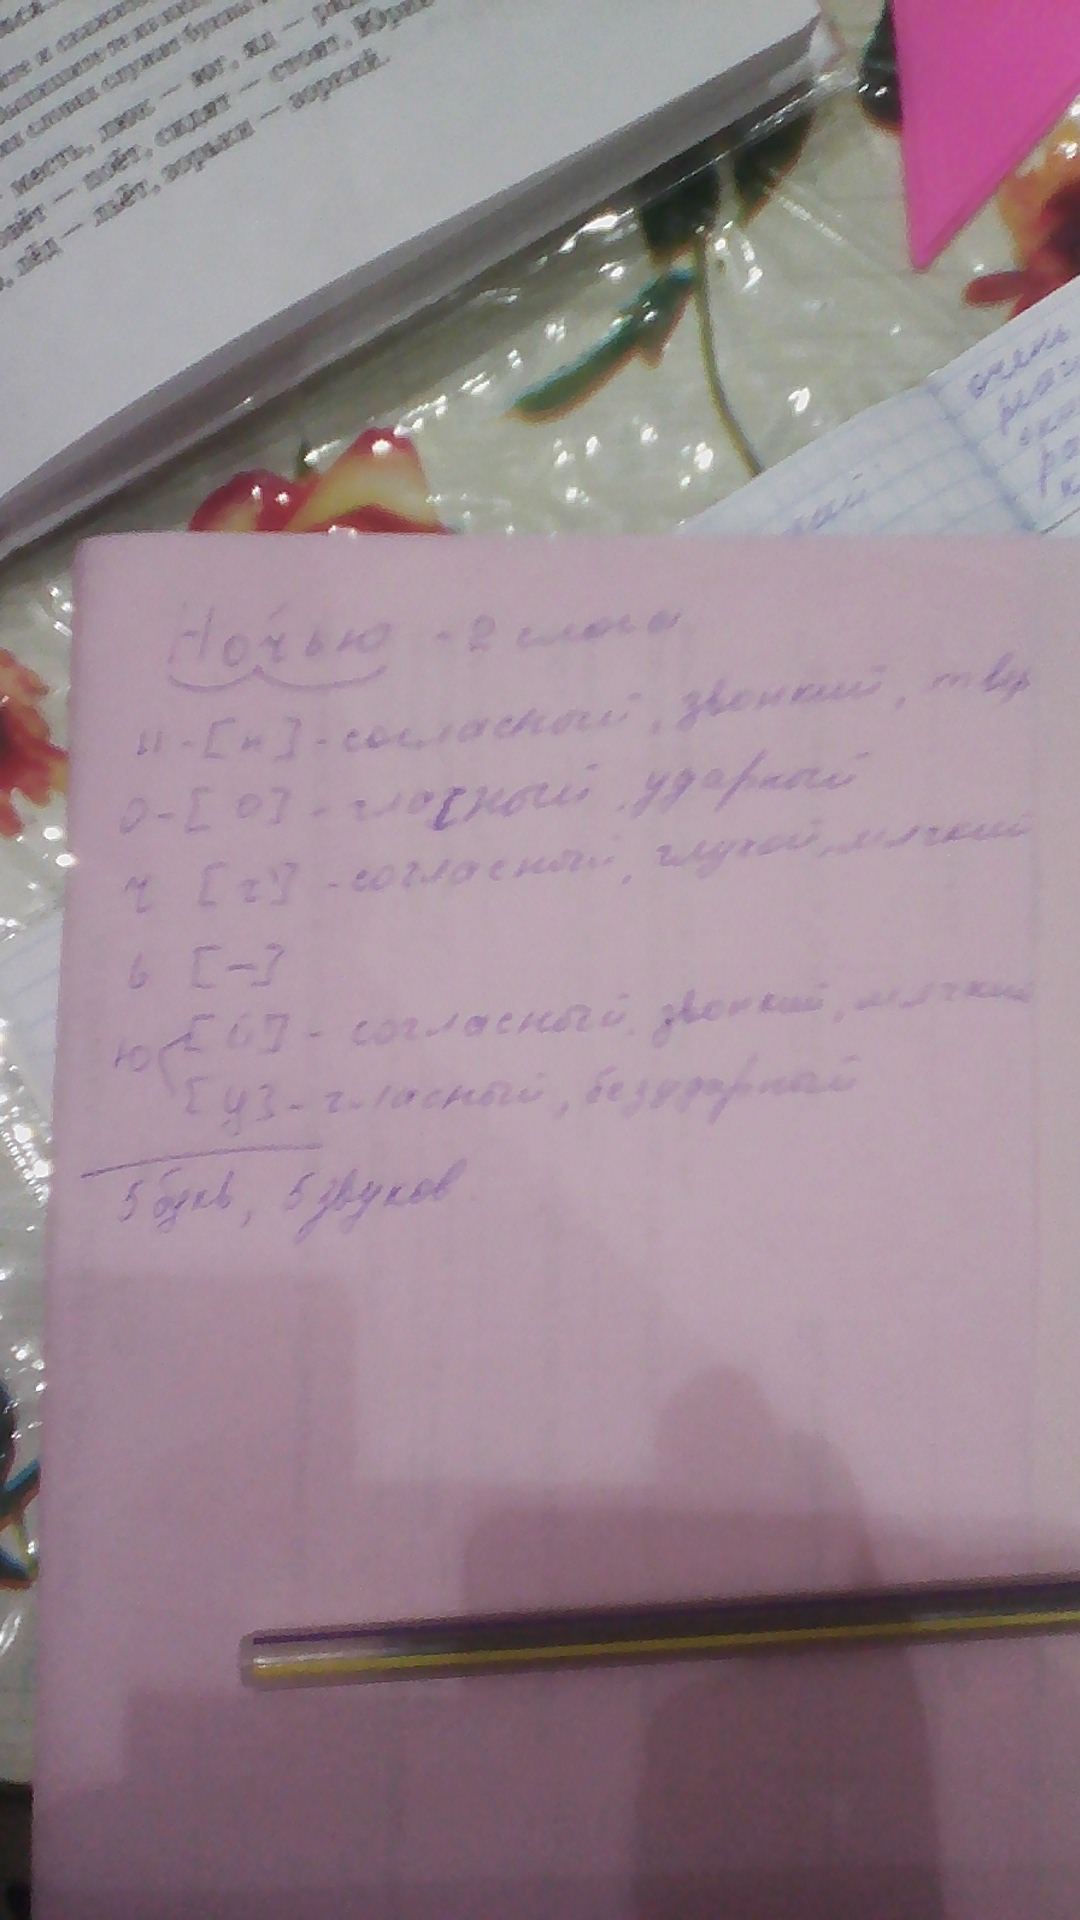 и скажите
словах служат буквы
месть, люк — юг, яд —
поёт, сидят — стоят, Юрий
лёд — льёт, зорьки — зоркий.
очень
Ночью - 2 слога
н - [н] - согласный, звонкий, твёр
о - [о] - гласный, ударный
ч [ч'] - согласный, глухой, мягкий
ь [-]
ю [й] - согласный, звонкий, мягкий
[у] - гласный, безударный
5 букв, 5 звуков.